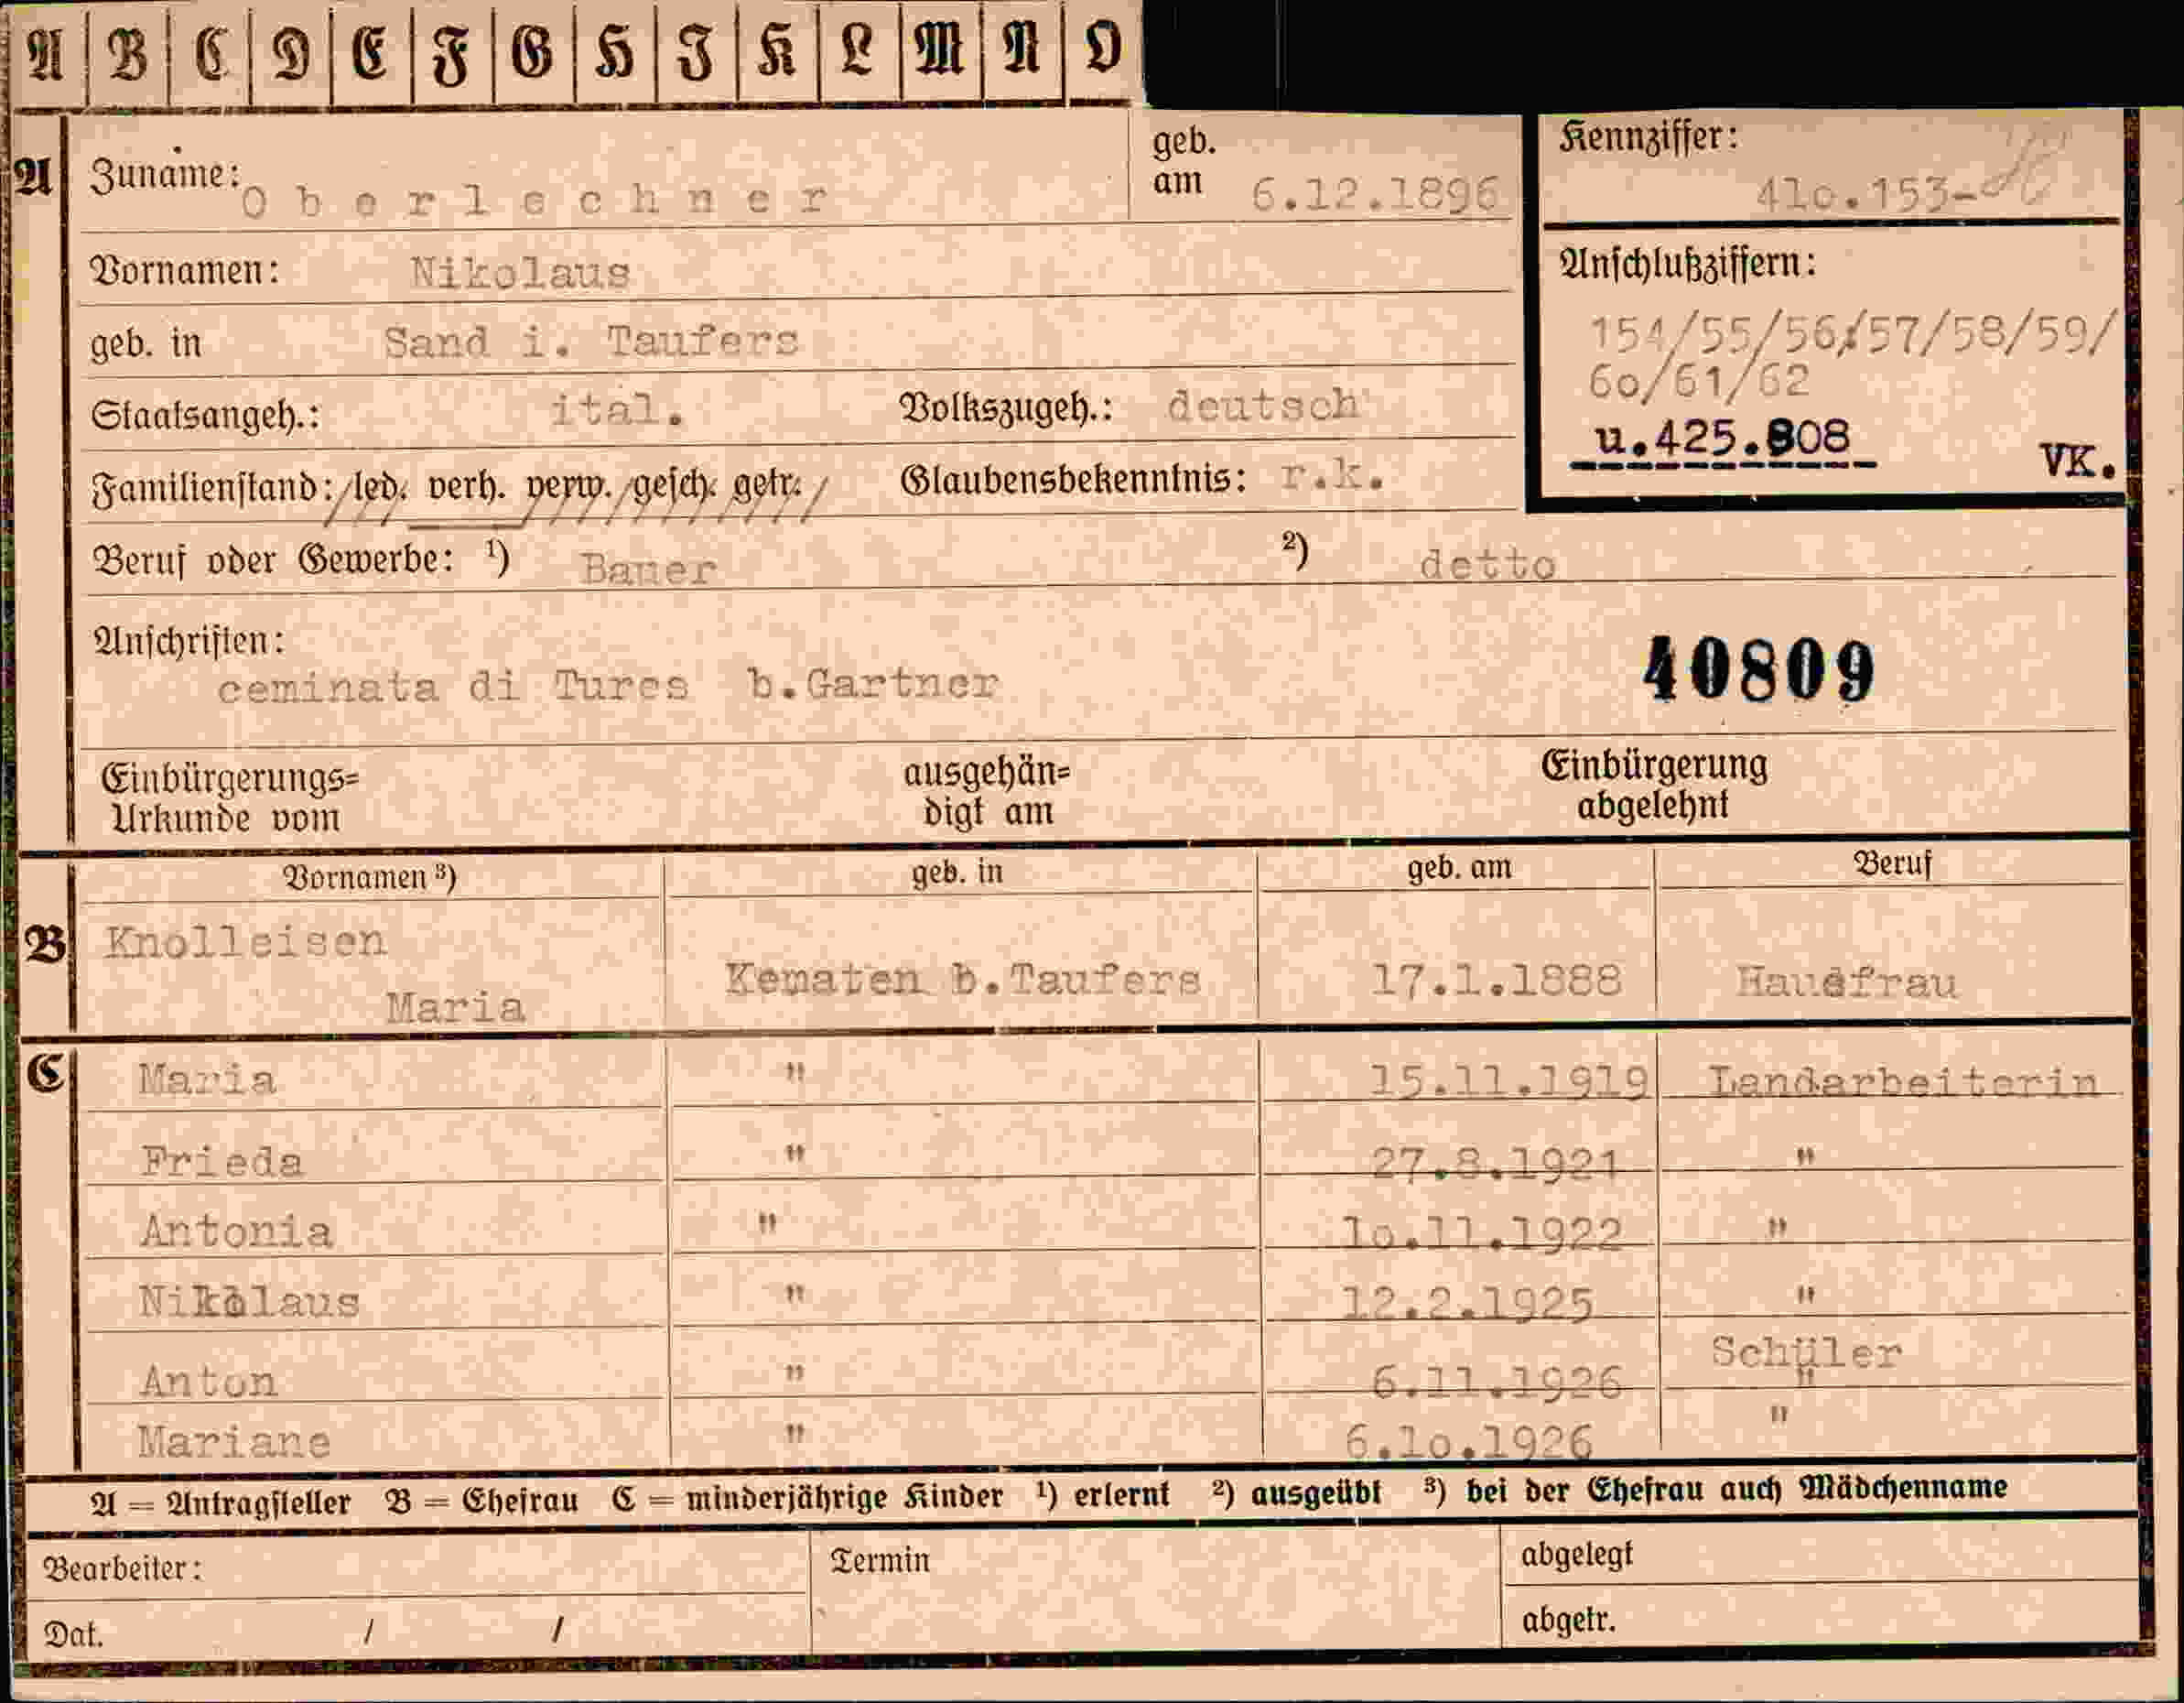 A B C D E F G H I K L M N O
A Zuname: Oberlechner geb. am 6.12.1896
Kennziffer: 41o.153-
Vornamen: Nikolaus
Anschlußziffern:
154/55/56/57/58/59/
6o/61/62
u.425.808 VK.
geb. in Sand i. Taufers
Staatsangeh.: ital. Volkszugeh.: deutsch
Familienstand: led. verh. verw. gesch. getr. Glaubensbekenntnis: r.k.
Beruf oder Gewerbe: ¹) Bauer ²) detto
Anschriften:
ceminata di Tures b.Gartner
40809
Einbürgerungs= ausgehän= Einbürgerung
Urkunde vom digt am abgelehnt
Vornamen ³) geb. in geb. am Beruf
B Knolleisen
Maria Kematen b.Taufers 17.1.1888 Hausfrau
C Maria " 15.11.1919 Landarbeiterin
Frieda " 27.8.1921 "
Antonia " 1o.11.1922 "
Nikolaus " 12.2.1925 "
Anton " 6.11.1926 Schüler "
Mariane " 6.1o.1926 "
A = Antragsteller B = Ehefrau C = minderjährige Kinder ¹) erlernt ²) ausgeübt ³) bei der Ehefrau auch Mädchenname
Bearbeiter: Termin abgelegt
Dat. / / abgetr.